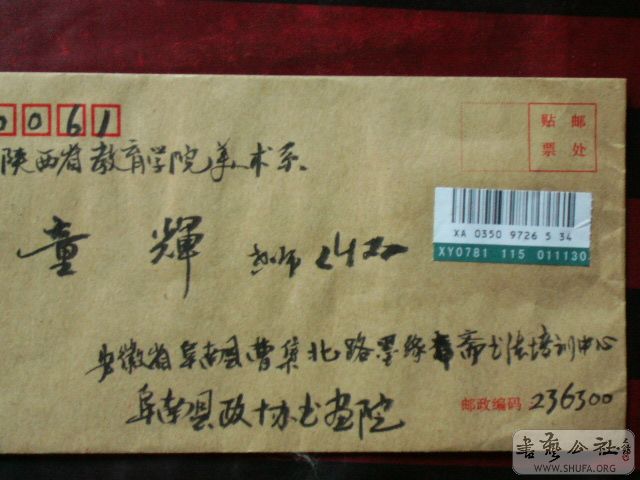 0061
贴 邮
票 处
陕西省教育学院美术系
XA 0350 9726 5 34
XY0781 115 011130
童 輝 老师
安徽省阜南县曹集北路墨缘斋书法培训中心
阜南县政协书画院
邮政编码 236300
書藝公社
WWW.SHUFA.ORG